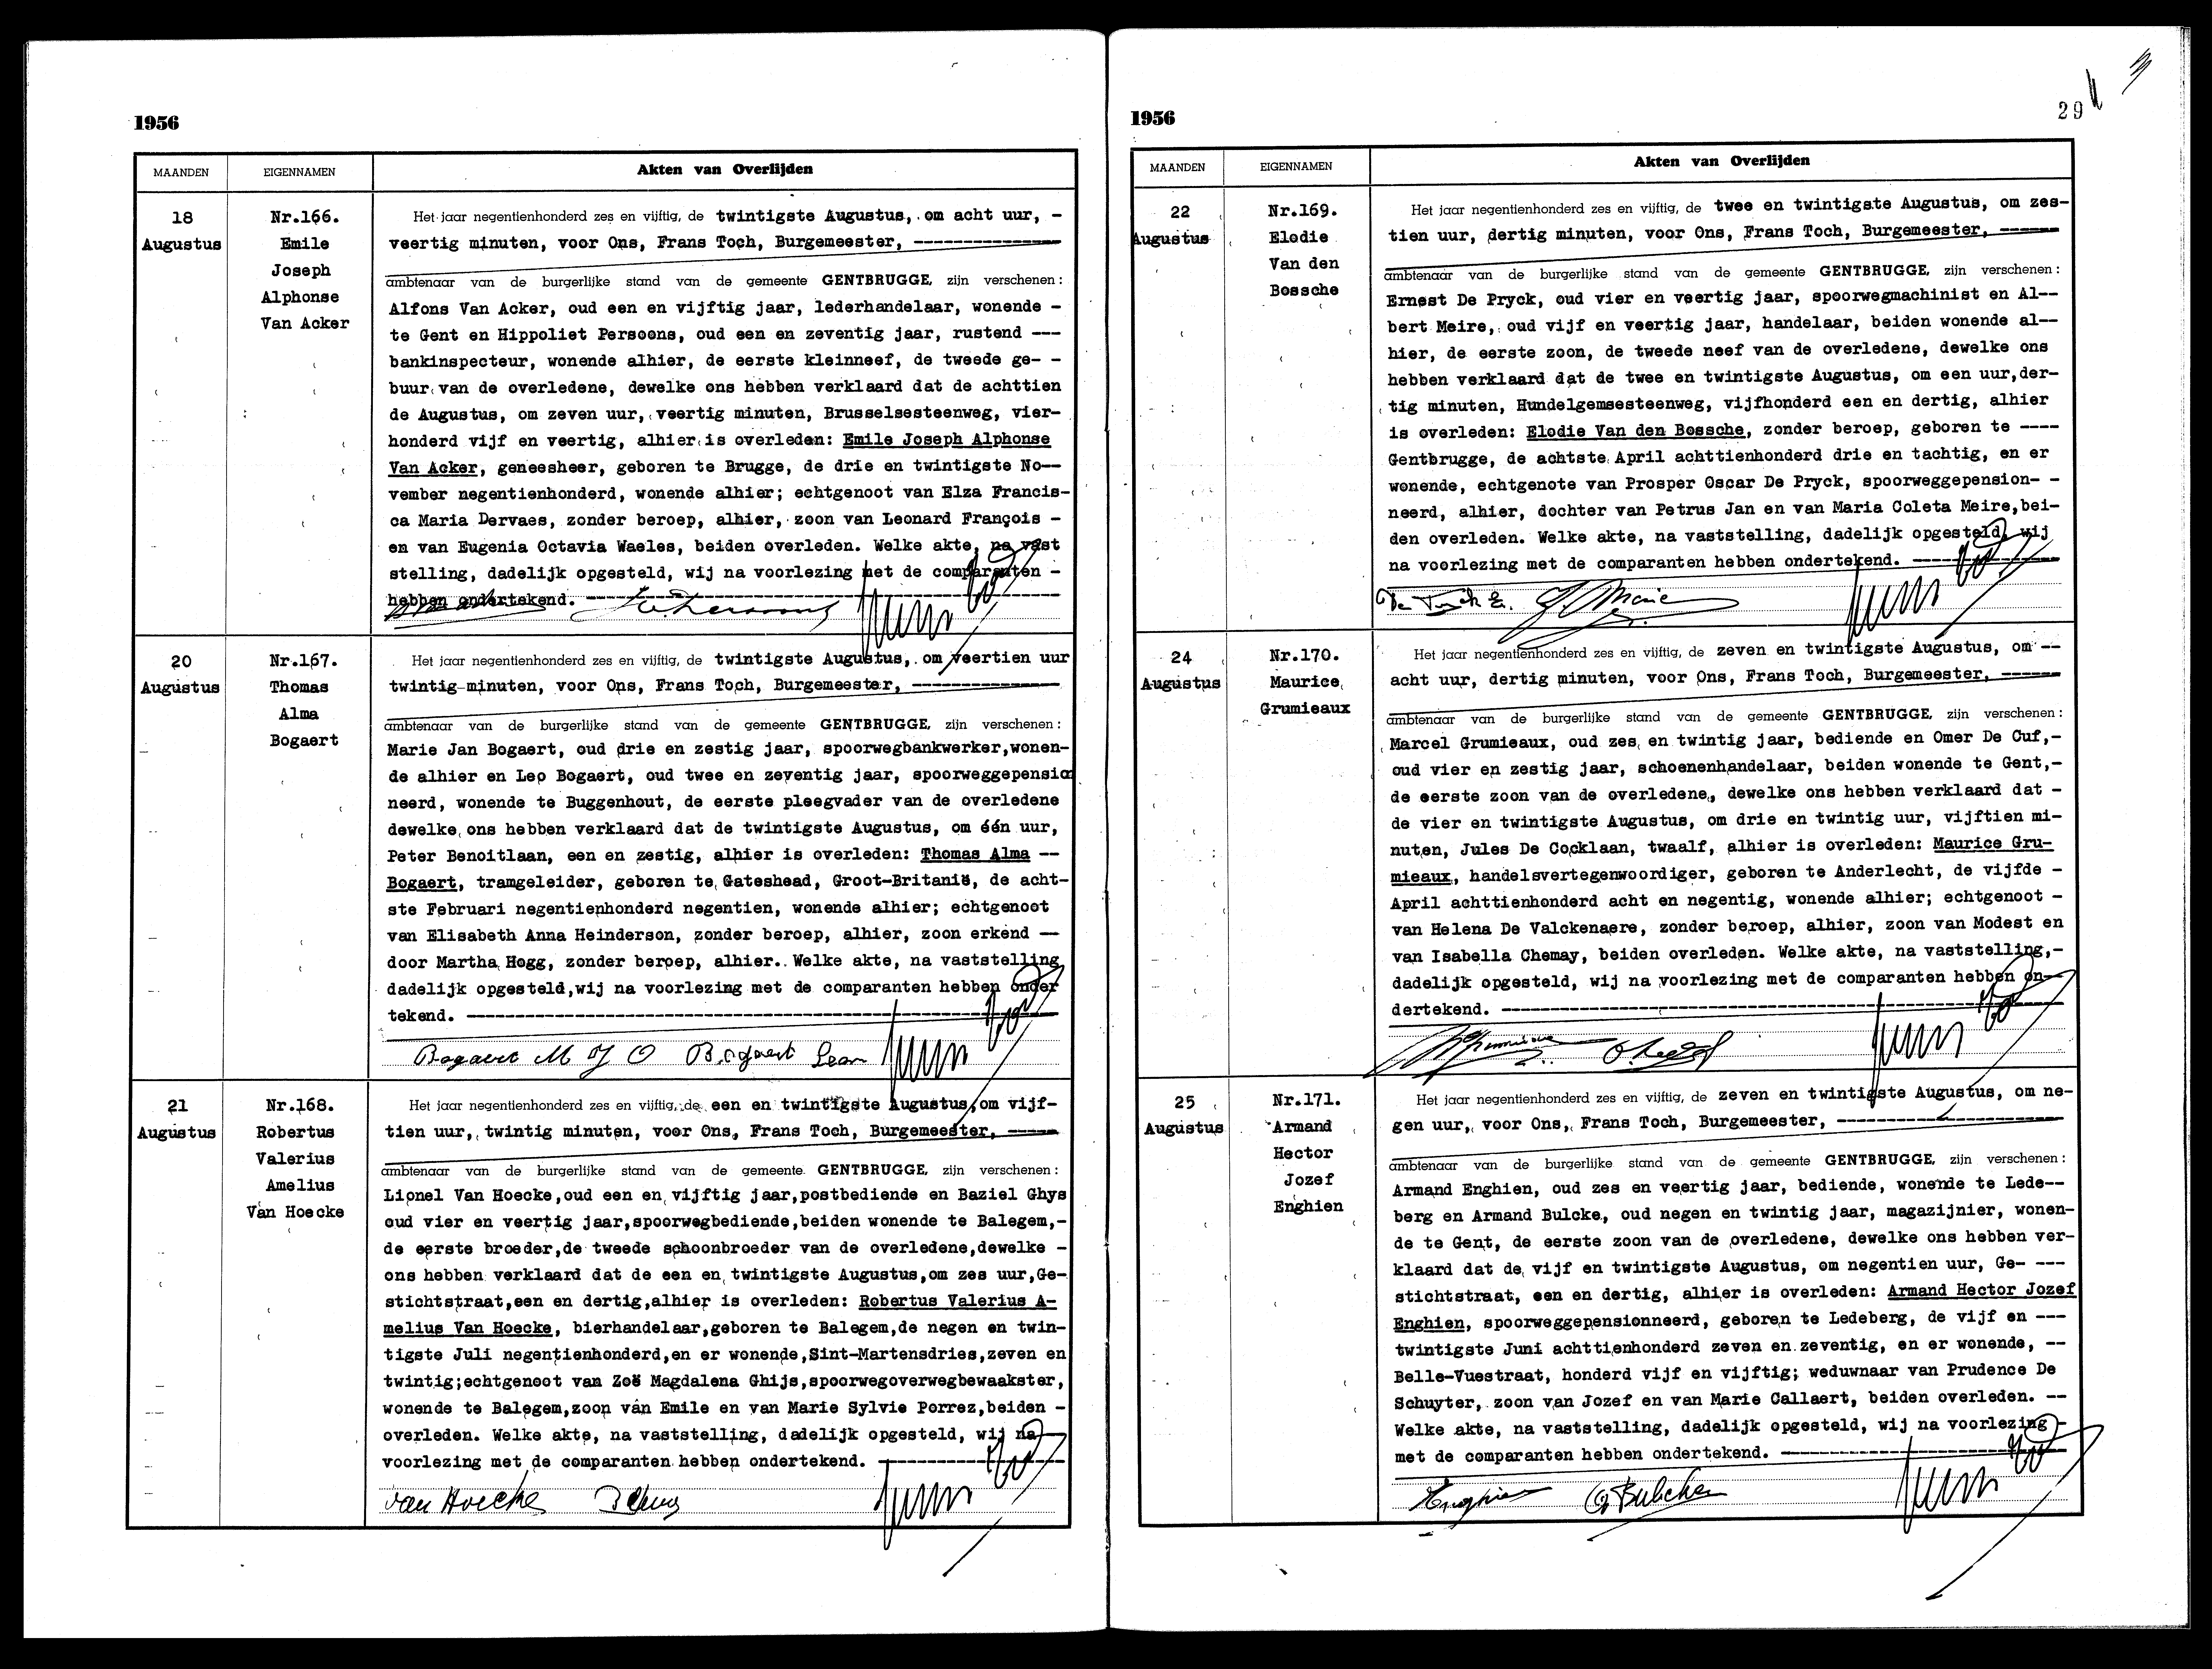 1956
MAANDEN
EIGENNAMEN
Akten van Overlijden
18
Augustus
Nr.166.
Emile
Joseph
Alphonse
Van Acker
Het jaar negentienhonderd zes en vijftig, de twintigste Augustus, om acht uur, -
veertig minuten, voor Ons, Frans Toch, Burgemeester, ----------------
ambtenaar van de burgerlijke stand van de gemeente GENTBRUGGE, zijn verschenen :
Alfons Van Acker, oud een en vijftig jaar, lederhandelaar, wonende -
te Gent en Hippoliet Persoons, oud een en zeventig jaar, rustend ---
bankinspecteur, wonende alhier, de eerste kleinneef, de tweede ge- -
buur van de overledene, dewelke ons hebben verklaard dat de achttien
de Augustus, om zeven uur, veertig minuten, Brusselsesteenweg, vier-
honderd vijf en veertig, alhier is overleden: Emile Joseph Alphonse
Van Acker, geneesheer, geboren te Brugge, de drie en twintigste No--
vember negentienhonderd, wonende alhier; echtgenoot van Elza Francis-
ca Maria Dervaes, zonder beroep, alhier, zoon van Leonard François -
en van Eugenia Octavia Waeles, beiden overleden. Welke akte, na vast
stelling, dadelijk opgesteld, wij na voorlezing met de comparanten -
hebben ondertekend. ----------------
20
Augustus
Nr.167.
Thomas
Alma
Bogaert
Het jaar negentienhonderd zes en vijftig, de twintigste Augustus, om veertien uur
twintig minuten, voor Ons, Frans Toch, Burgemeester, ----------------
ambtenaar van de burgerlijke stand van de gemeente GENTBRUGGE, zijn verschenen :
Marie Jan Bogaert, oud drie en zestig jaar, spoorwegbankwerker,wonen-
de alhier en Leo Bogaert, oud twee en zeventig jaar, spoorweggepensio
neerd, wonende te Buggenhout, de eerste pleegvader van de overledene
dewelke ons hebben verklaard dat de twintigste Augustus, om één uur,
Peter Benoitlaan, een en zestig, alhier is overleden: Thomas Alma --
Bogaert, tramgeleider, geboren te Gateshead, Groot-Britanië, de acht-
ste Februari negentienhonderd negentien, wonende alhier; echtgenoot
van Elisabeth Anna Heinderson, zonder beroep, alhier, zoon erkend --
door Martha Hogg, zonder beroep, alhier. Welke akte, na vaststelling
dadelijk opgesteld,wij na voorlezing met de comparanten hebben onder
tekend. ----------------
Bogaert M J O Bogaert Leon
21
Augustus
Nr.168.
Robertus
Valerius
Amelius
Van Hoecke
Het jaar negentienhonderd zes en vijftig, de een en twintigste Augustus,om vijf-
tien uur, twintig minuten, voor Ons, Frans Toch, Burgemeester, -----
ambtenaar van de burgerlijke stand van de gemeente GENTBRUGGE, zijn verschenen :
Lionel Van Hoecke,oud een en vijftig jaar,postbediende en Baziel Ghys
oud vier en veertig jaar,spoorwegbediende,beiden wonende te Balegem,-
de eerste broeder,de tweede schoonbroeder van de overledene,dewelke -
ons hebben verklaard dat de een en twintigste Augustus,om zes uur,Ge-
stichtstraat,een en dertig,alhier is overleden: Robertus Valerius A-
melius Van Hoecke, bierhandelaar,geboren te Balegem,de negen en twin-
tigste Juli negentienhonderd,en er wonende,Sint-Martensdries,zeven en
twintig;echtgenoot van Zoë Magdalena Ghijs,spoorwegoverwegbewaakster,
wonende te Balegem,zoon van Emile en van Marie Sylvie Porrez,beiden -
overleden. Welke akte, na vaststelling, dadelijk opgesteld, wij na
voorlezing met de comparanten hebben ondertekend. ----------------
van Hoecke
1956
29
MAANDEN
EIGENNAMEN
Akten van Overlijden
22
Augustus
Nr.169.
Elodie
Van den
Bossche
Het jaar negentienhonderd zes en vijftig, de twee en twintigste Augustus, om zes-
tien uur, dertig minuten, voor Ons, Frans Toch, Burgemeester, ------
ambtenaar van de burgerlijke stand van de gemeente GENTBRUGGE, zijn verschenen :
Ernest De Pryck, oud vier en veertig jaar, spoorwegmachinist en Al--
bert Meire, oud vijf en veertig jaar, handelaar, beiden wonende al--
hier, de eerste zoon, de tweede neef van de overledene, dewelke ons
hebben verklaard dat de twee en twintigste Augustus, om een uur,der-
tig minuten, Hundelgemsesteenweg, vijfhonderd een en dertig, alhier
is overleden: Elodie Van den Bossche, zonder beroep, geboren te ----
Gentbrugge, de achtste April achttienhonderd drie en tachtig, en er
wonende, echtgenote van Prosper Oscar De Pryck, spoorweggepension- -
neerd, alhier, dochter van Petrus Jan en van Maria Coleta Meire,bei-
den overleden. Welke akte, na vaststelling, dadelijk opgesteld, wij
na voorlezing met de comparanten hebben ondertekend. ----------------
24
Augustus
Nr.170.
Maurice
Grumieaux
Het jaar negentienhonderd zes en vijftig, de zeven en twintigste Augustus, om --
acht uur, dertig minuten, voor Ons, Frans Toch, Burgemeester, ------
ambtenaar van de burgerlijke stand van de gemeente GENTBRUGGE, zijn verschenen :
Marcel Grumieaux, oud zes en twintig jaar, bediende en Omer De Cuf,-
oud vier en zestig jaar, schoenenhandelaar, beiden wonende te Gent,-
de eerste zoon van de overledene, dewelke ons hebben verklaard dat -
de vier en twintigste Augustus, om drie en twintig uur, vijftien mi-
nuten, Jules De Cocklaan, twaalf, alhier is overleden: Maurice Gru-
mieaux, handelsvertegenwoordiger, geboren te Anderlecht, de vijfde -
April achttienhonderd acht en negentig, wonende alhier; echtgenoot -
van Helena De Valckenaere, zonder beroep, alhier, zoon van Modest en
van Isabella Chemay, beiden overleden. Welke akte, na vaststelling,-
dadelijk opgesteld, wij na voorlezing met de comparanten hebben on-
dertekend. ----------------
25
Augustus
Nr.171.
Armand
Hector
Jozef
Enghien
Het jaar negentienhonderd zes en vijftig, de zeven en twintigste Augustus, om ne-
gen uur, voor Ons, Frans Toch, Burgemeester, ----------------
ambtenaar van de burgerlijke stand van de gemeente GENTBRUGGE, zijn verschenen :
Armand Enghien, oud zes en veertig jaar, bediende, wonende te Lede--
berg en Armand Bulcke, oud negen en twintig jaar, magazijnier, wonen-
de te Gent, de eerste zoon van de overledene, dewelke ons hebben ver-
klaard dat de vijf en twintigste Augustus, om negentien uur, Ge- ---
stichtstraat, een en dertig, alhier is overleden: Armand Hector Jozef
Enghien, spoorweggepensionneerd, geboren te Ledeberg, de vijf en ---
twintigste Juni achttienhonderd zeven en zeventig, en er wonende, --
Belle-Vuestraat, honderd vijf en vijftig; weduwnaar van Prudence De
Schuyter, zoon van Jozef en van Marie Callaert, beiden overleden. --
Welke akte, na vaststelling, dadelijk opgesteld, wij na voorlezing -
met de comparanten hebben ondertekend. ----------------
Enghien